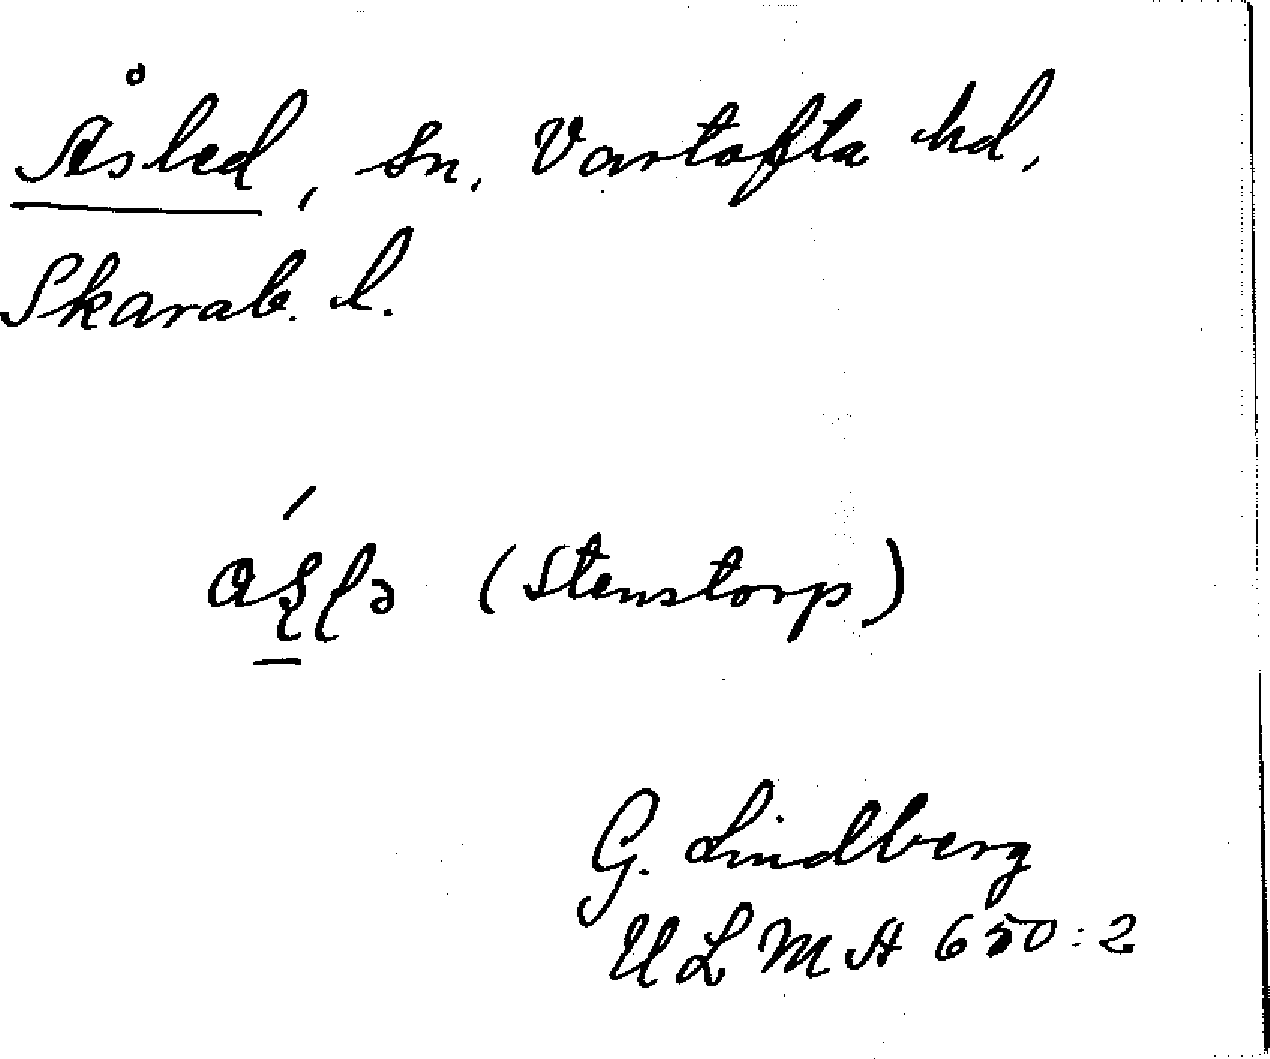 Åsled, sn. Vartofta hd,
Skarab. l.
(Stenstorp)
G. Lindberg
ULMA 650:2